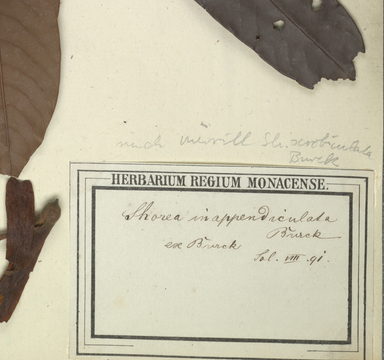 nach Merrill Sh. scrobiculata
Burck
HERBARIUM REGIUM MONACENSE.
Shorea inappendiculata
Burck
ex Burck
Sol. VIII. 91.